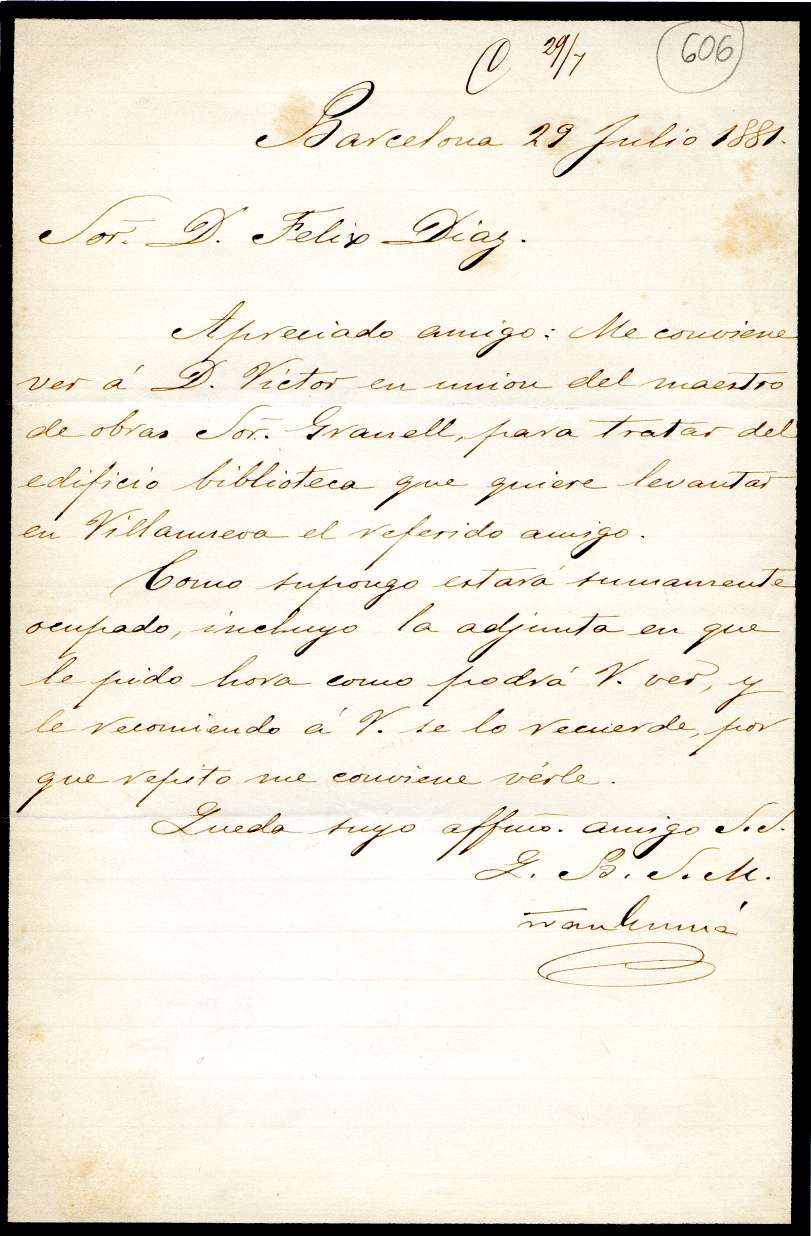 C 29/7 606
Barcelona 29 Julio 1881.
Sor. D. Felix Diaz.
Apreciado amigo: Me conviene
ver á D. Víctor en union del maestro
de obras Sor. Granell, para tratar del
edificio biblioteca que quiere levantar
en Villanueva el referido amigo.
Como supongo estará sumamente
ocupado, incluyo la adjunta en que
le pido hora como podrá V. ver, y
le recomiendo á V. se lo recuerde, por
que repito me conviene vérle.
Queda suyo affmo. amigo S.S.
Q. B. S. M.